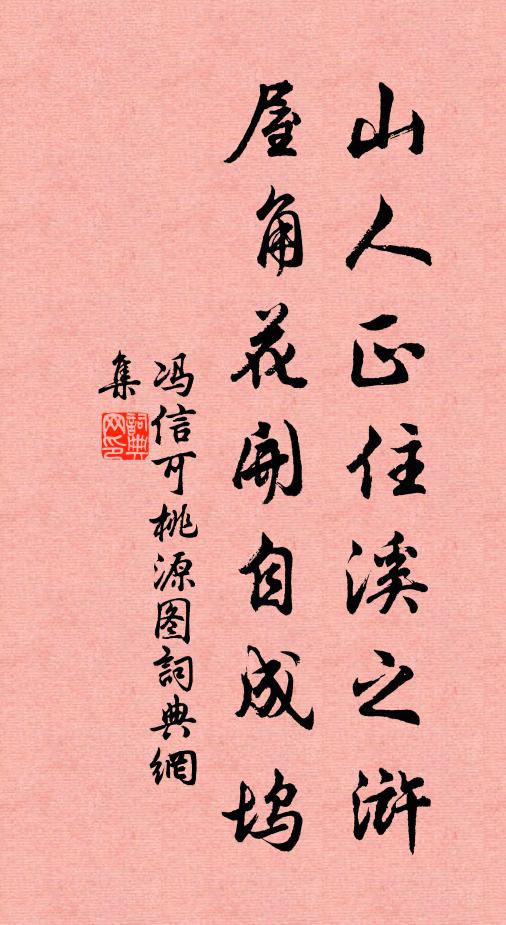 山人正住溪之浒
屋角花開自成坞
冯信可桃源图詞典網
集
詞典网印